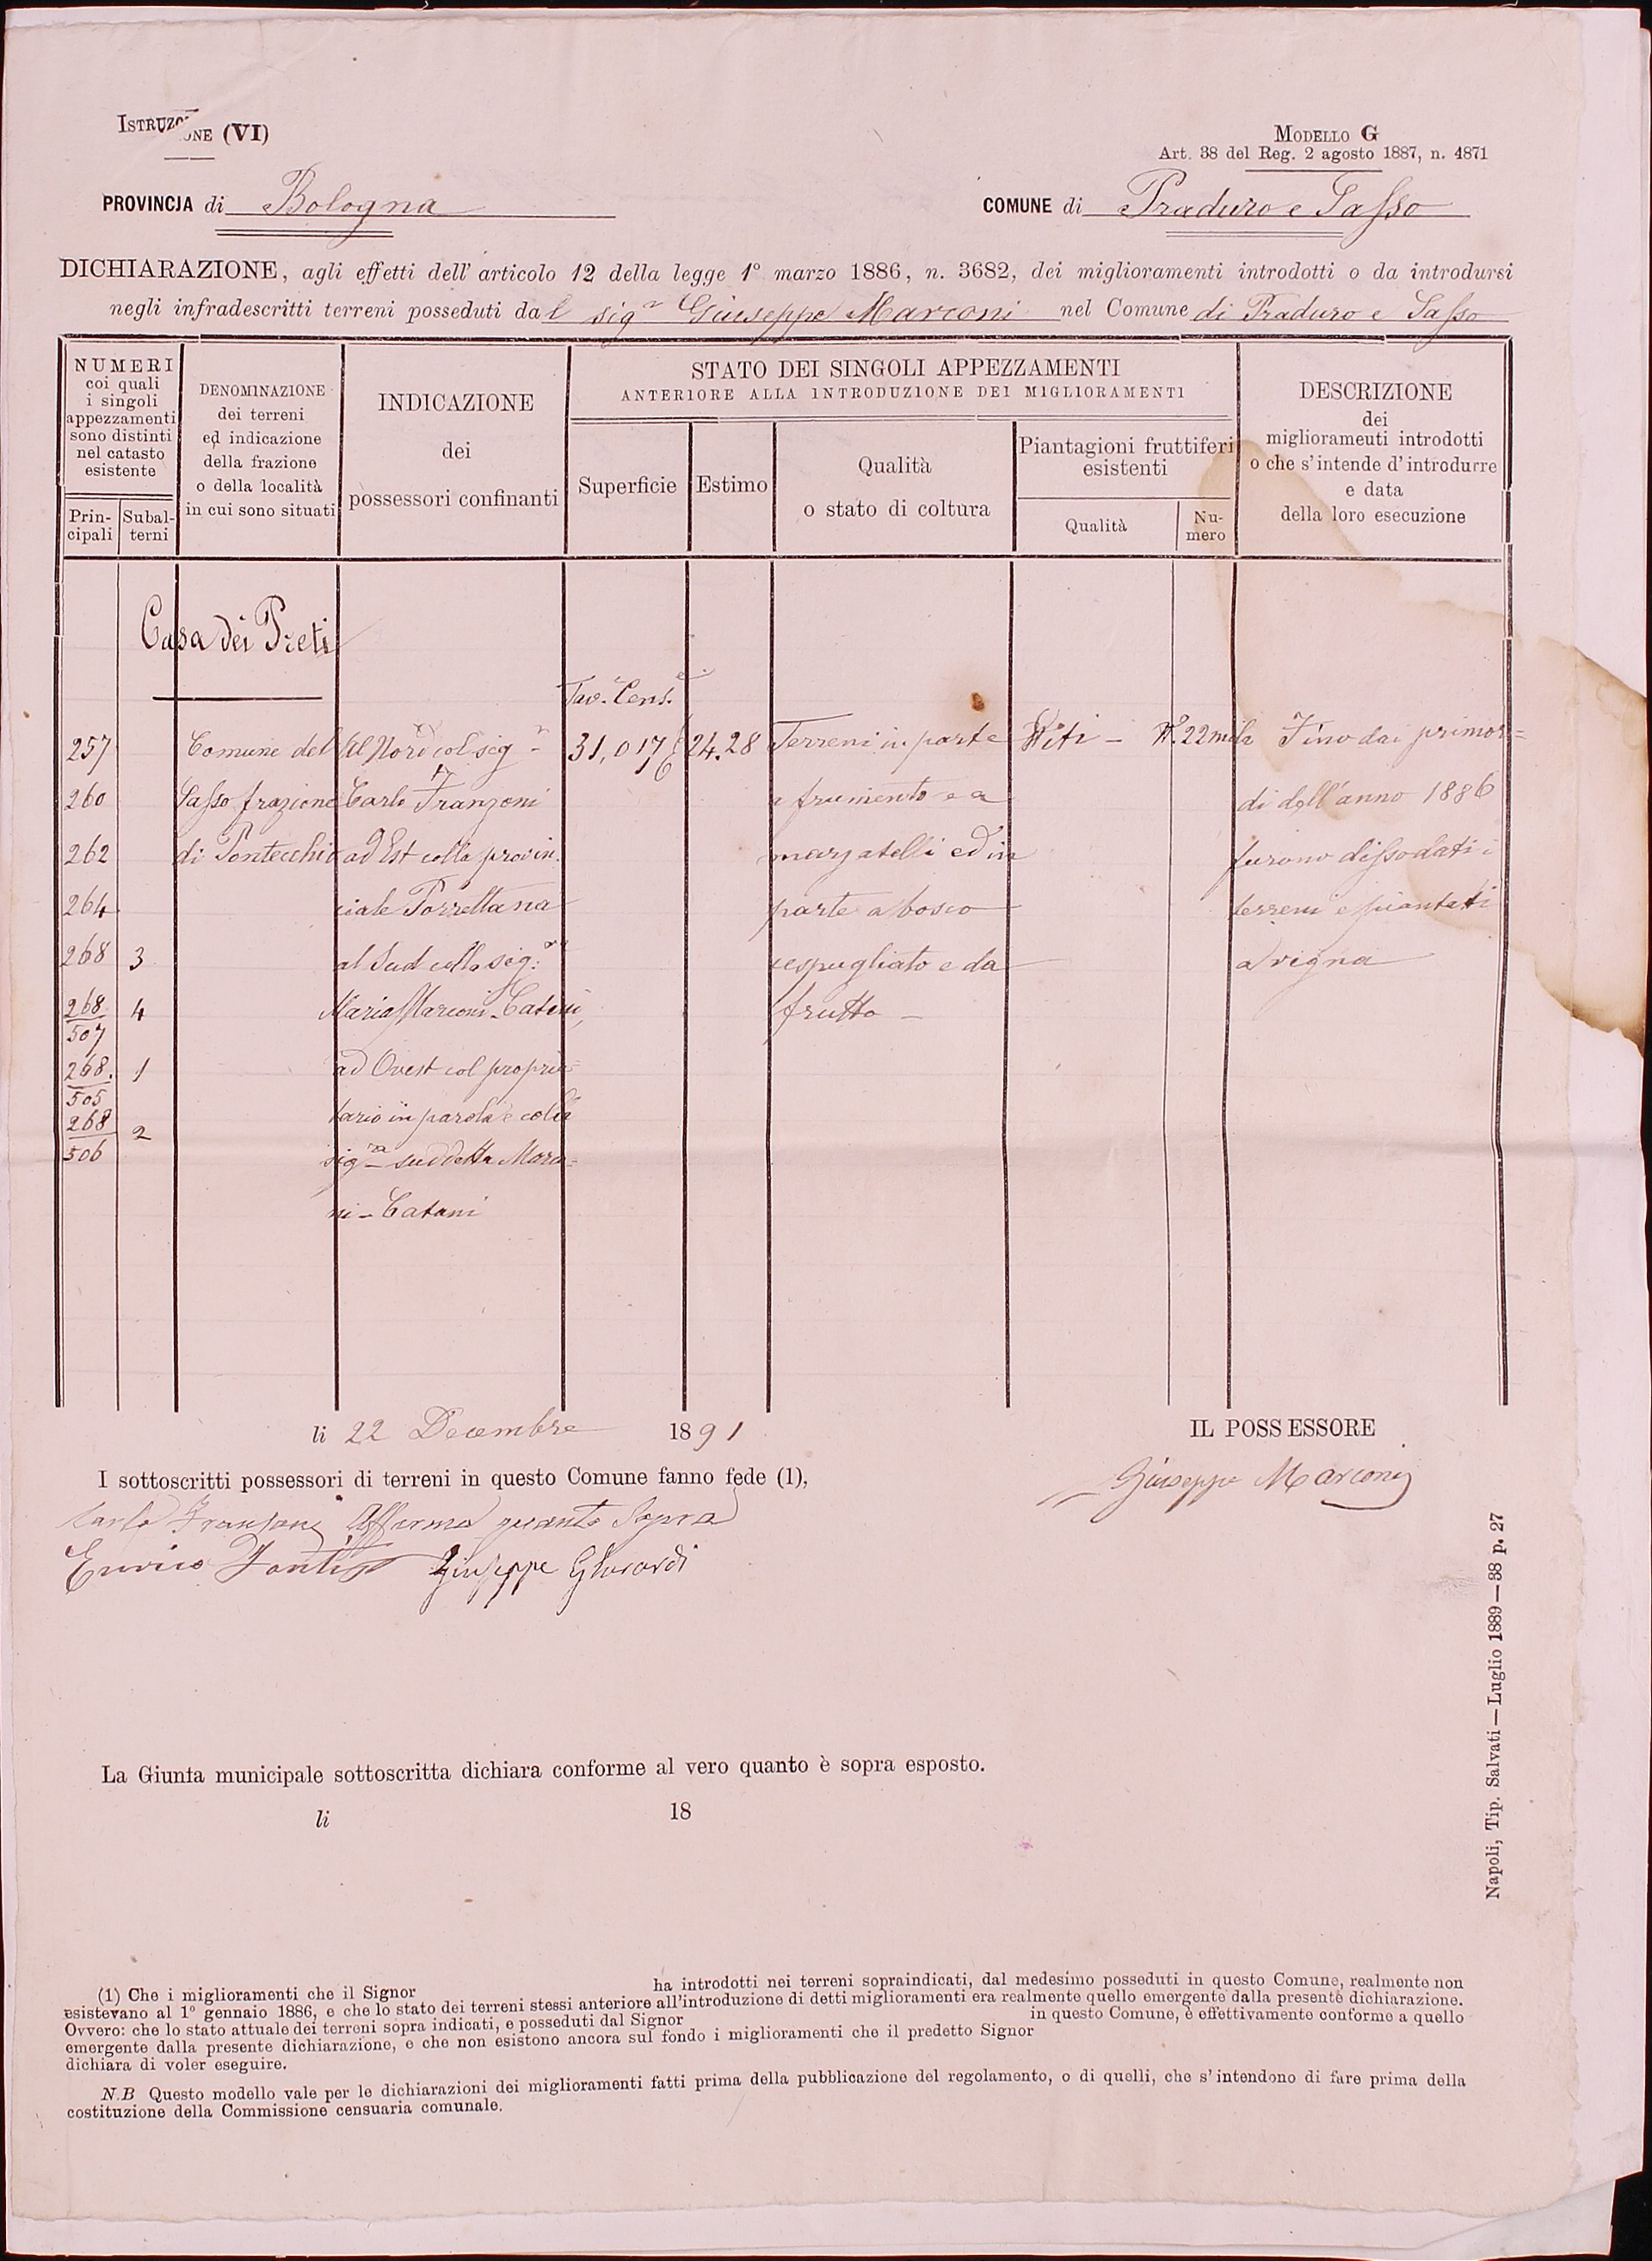 ISTRUZIONE (VI)
MODELLO G
Art. 38 del Reg. 2 agosto 1887, n. 4871
PROVINCIA di Bologna
COMUNE di Praduro e Sasso
DICHIARAZIONE, agli effetti dell' articolo 12 della legge 1° marzo 1886, n. 3682, dei miglioramenti introdotti o da introdursi
negli infradescritti terreni posseduti dal sigr Giuseppe Marconi nel Comune di Praduro e Sasso
NUMERI
coi quali
i singoli
appezzamenti
sono distinti
nel catasto
esistente
Prin-
cipali
Subal-
terni
DENOMINAZIONE
dei terreni
ed indicazione
della frazione
o della località
in cui sono situati
INDICAZIONE
dei
possessori confinanti
STATO DEI SINGOLI APPEZZAMENTI
ANTERIORE ALLA INTRODUZIONE DEI MIGLIORAMENTI
Superficie
Estimo
Qualità
o stato di coltura
Piantagioni fruttiferi
esistenti
Qualità
Nu-
mero
DESCRIZIONE
dei
migliorameuti introdotti
o che s'intende d'introdurre
e data
della loro esecuzione
Casa dei Preti
257
260
262
264
268 3
268/507 4
268/505 1
268/506 2
Comune del
Sasso frazione
di Pontecchio
Al Nord col sigr
Carlo Franzoni
ad Est colla provin.
ciale Porrettana
al Sud colla sig:ra
Maria Marconi-Catani,
ad Ovest col proprie=
tario in parola e colla
sigra suddetta Marco=
ni-Catani
Tav. Cens.
31,017
24.28
Terreni in parte
a frumento e a
marzatelli ed in
parte a bosco
cespugliato e da
frutto -
Viti -
N. 22 mila
Fino dai primor=
di dell'anno 1886
furono dissodati i
terreni e piantati
a vigna
li 22 Decembre 1891
IL POSSESSORE
Giuseppe Marconi
I sottoscritti possessori di terreni in questo Comune fanno fede (1),
Carlo Franzoni Affermo quanto Sopra
Enrico Giuseppe Gherardi
La Giunta municipale sottoscritta dichiara conforme al vero quanto è sopra esposto.
li 18
Napoli, Tip. Salvati — Luglio 1889—38 p. 27
(1) Che i miglioramenti che il Signor ha introdotti nei terreni sopraindicati, dal medesimo posseduti in questo Comune, realmente non
esistevano al 1° gennaio 1886, e che lo stato dei terreni stessi anteriore all'introduzione di detti miglioramenti era realmente quello emergente dalla presente dichiarazione.
Ovvero: che lo stato attuale dei terreni sopra indicati, e posseduti dal Signor in questo Comune, è effettivamente conforme a quello
emergente dalla presente dichiarazione, e che non esistono ancora sul fondo i miglioramenti che il predetto Signor
dichiara di voler eseguire.
N.B Questo modello vale per le dichiarazioni dei miglioramenti fatti prima della pubblicazione del regolamento, o di quelli, che s'intendono di fare prima della
costituzione della Commissione censuaria comunale.